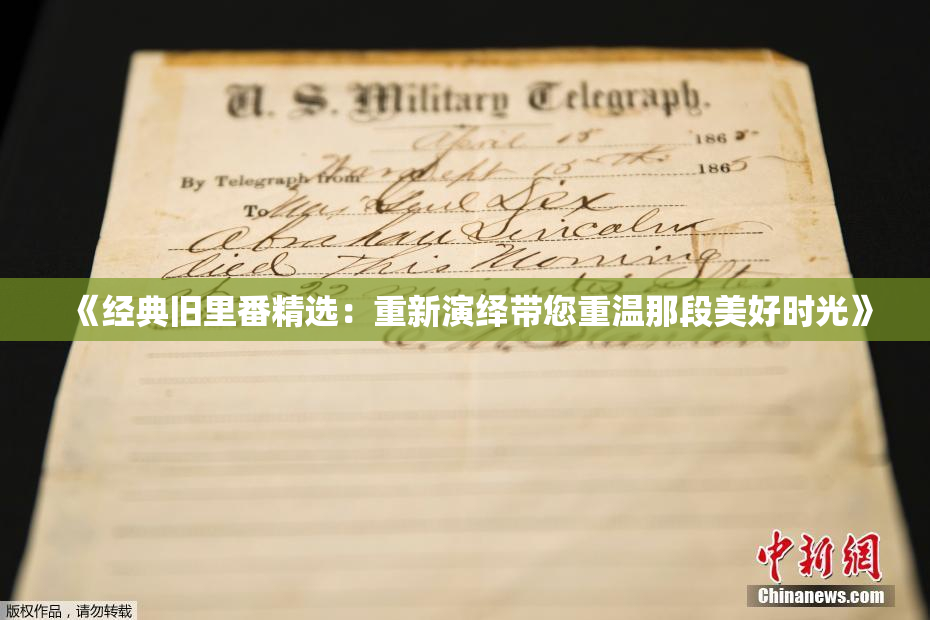 U. S. Military Telegraph.
April 15 1865
By Telegraph from War Dept 15th 1865
To Maj Genl Dix
Abraham Lincoln
died This Morning
at 22 minutes after
《经典旧里番精选：重新演绎带您重温那段美好时光》
E. M. Stanton
中新网
Chinanews.com
版权作品，请勿转载